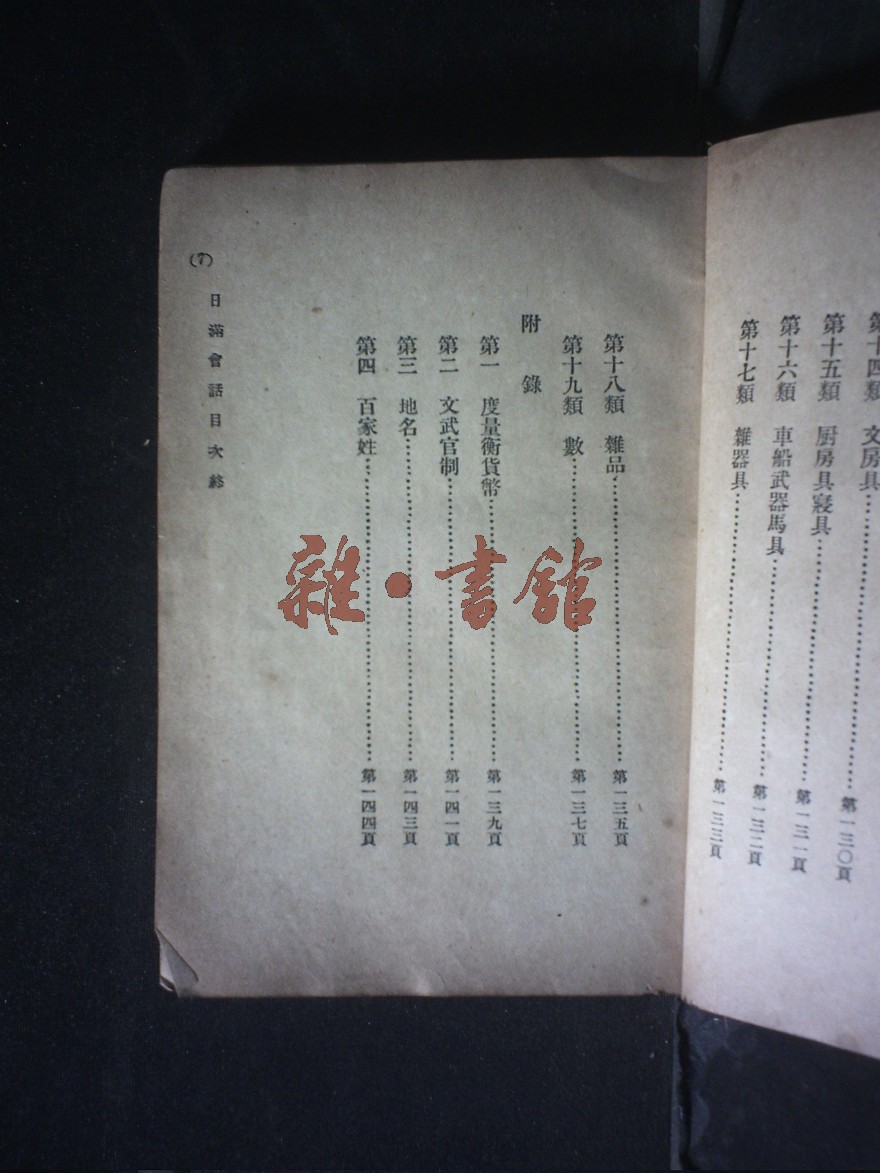 第十四類　文房具………第一三〇頁
第十五類　厨房具寢具………第一三一頁
第十六類　車船武器馬具………第一三二頁
第十七類　雜器具………第一三三頁
第十八類　雜品………第一三五頁
第十九類　數………第一三七頁
附錄
第一　度量衡貨幣………第一三九頁
第二　文武官制………第一四一頁
第三　地名………第一四三頁
第四　百家姓………第一四四頁
日滿會話目次終
(7)
雜・書館